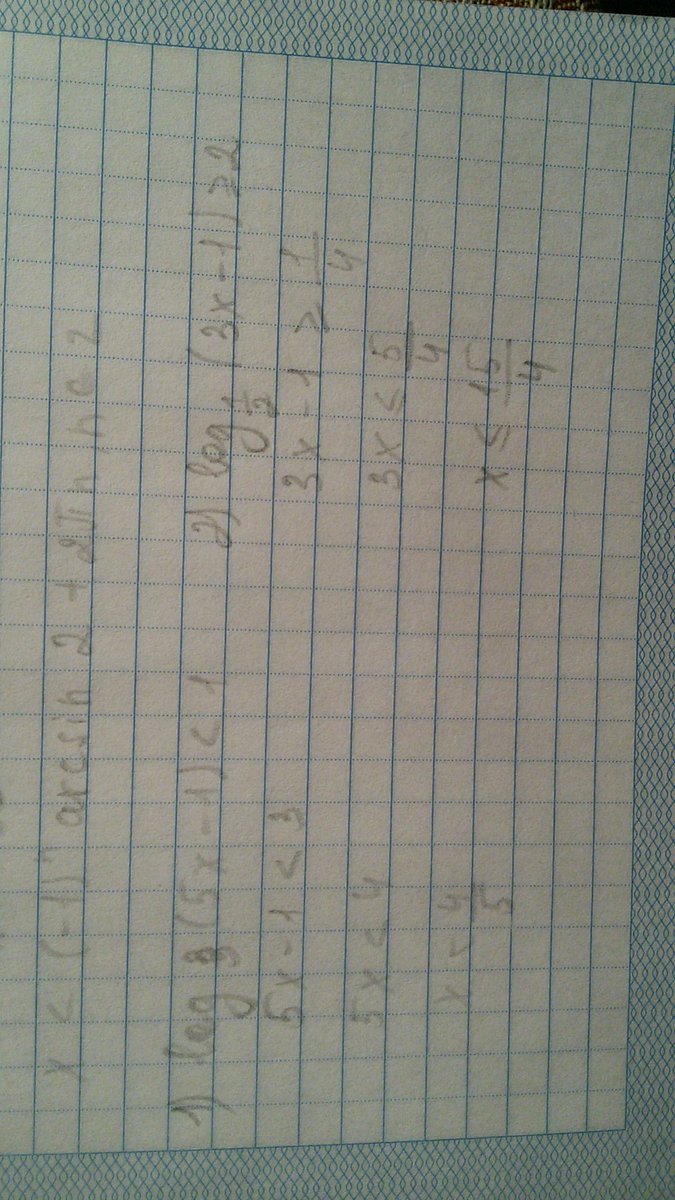 x < (-1)ⁿ arcsin 2 + 2πn, n ∈ z
1) log₃(5x-1) < 1
5x-1 < 3
5x < 4
x < 4/5
2) log_{1/2} (3x-1) ≥ 2
3x-1 ≥ 1/4
3x ≤ 5/4
x ≤ 15/4